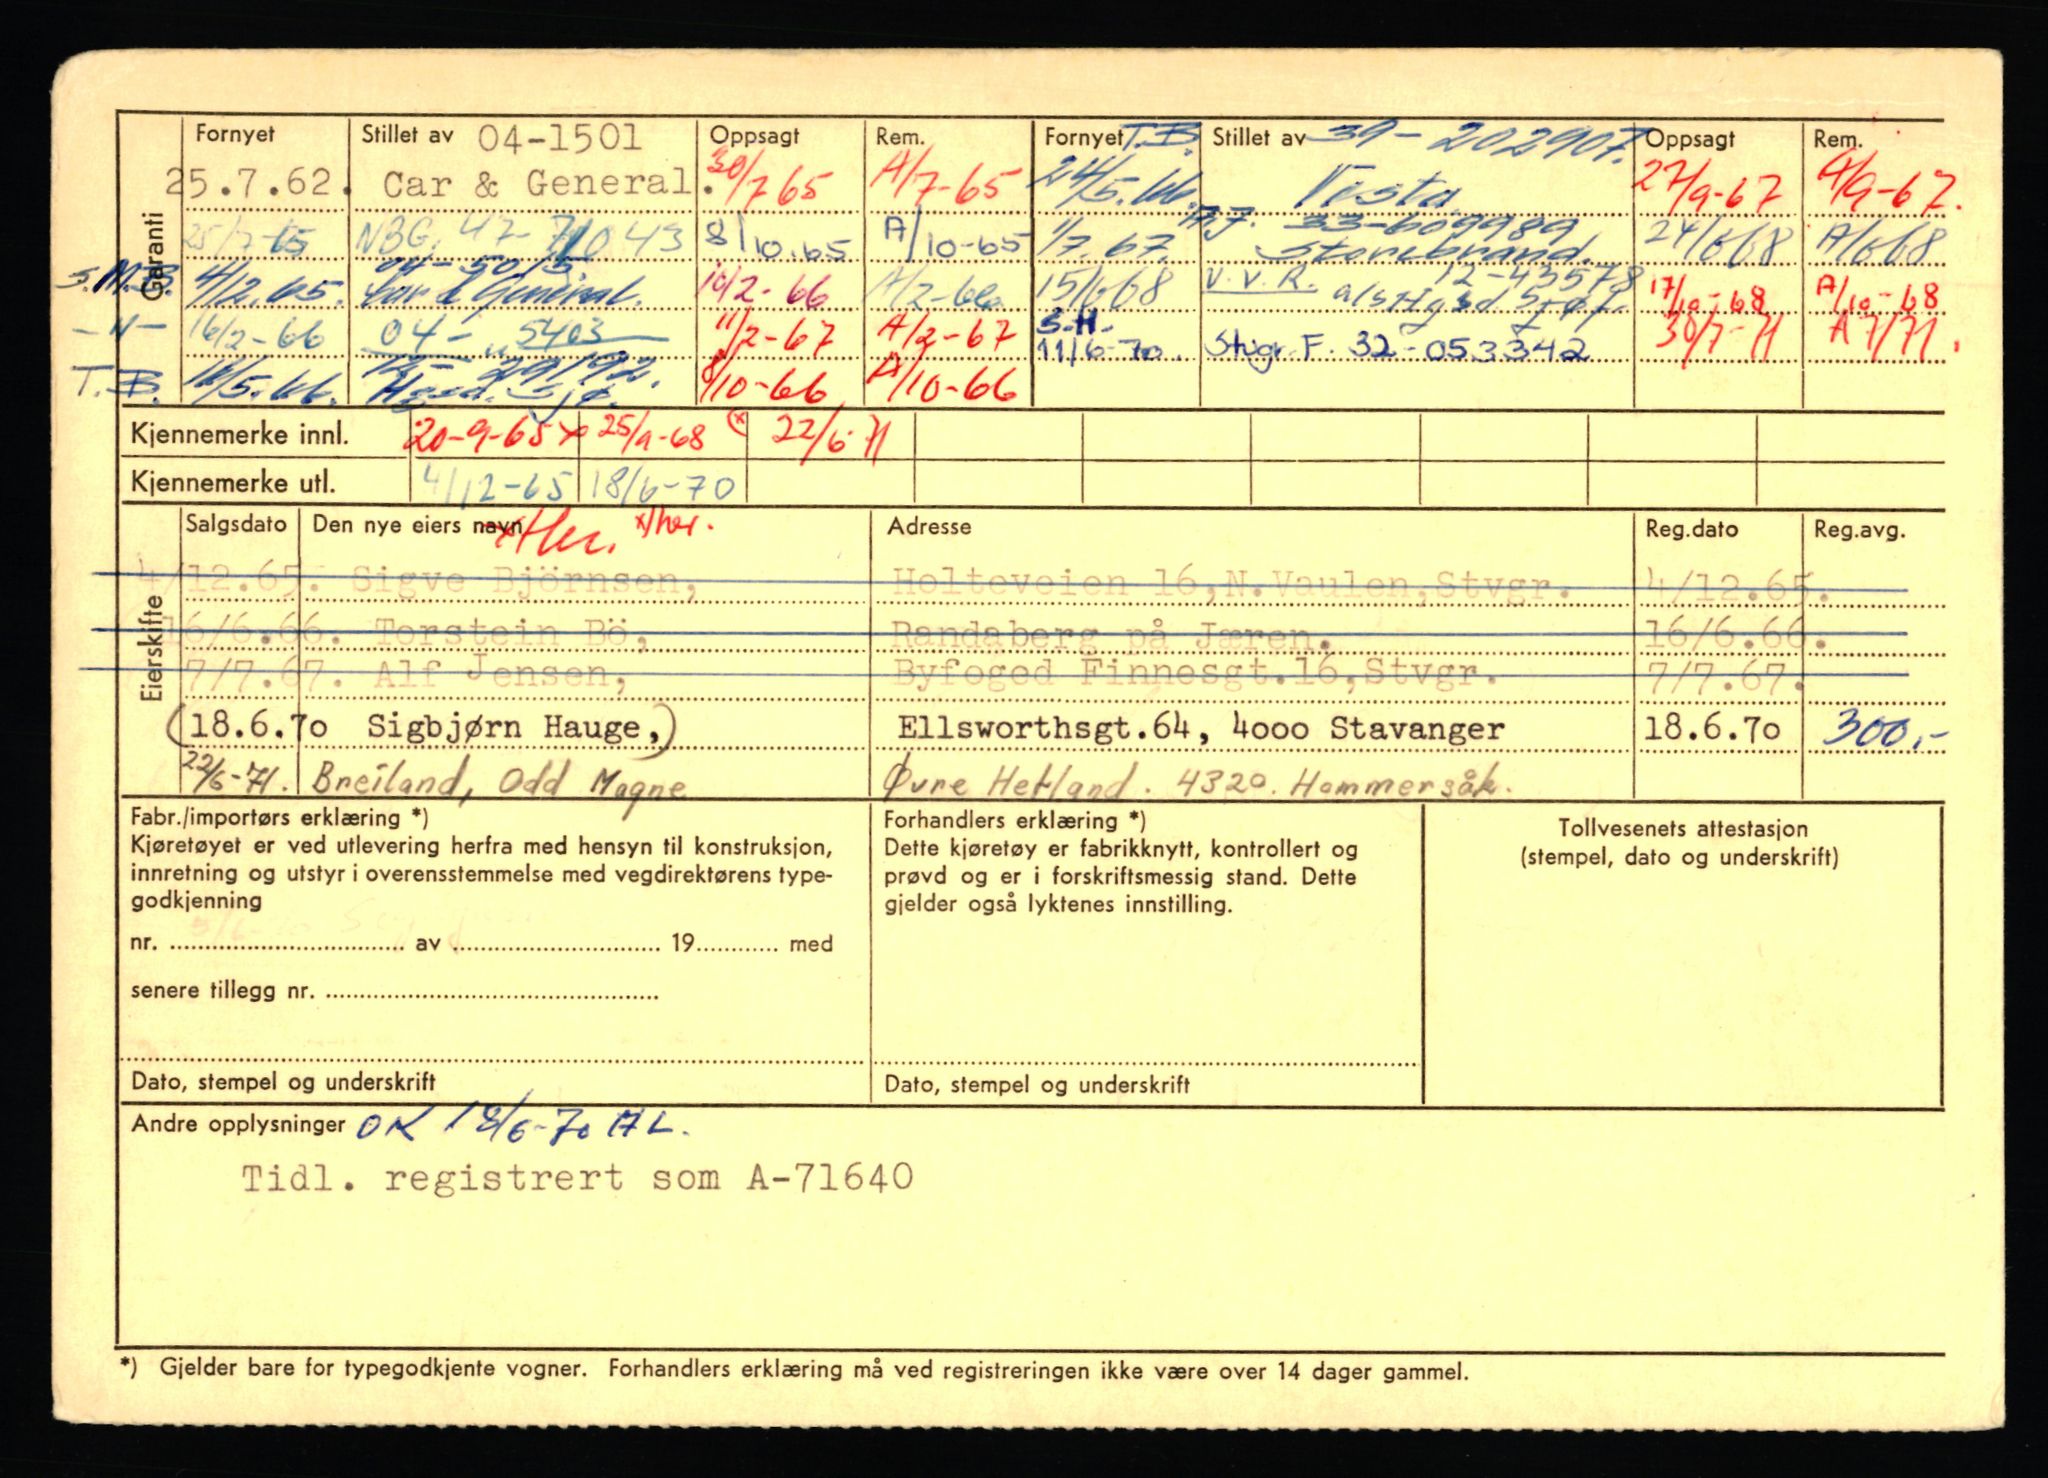 Garanti
Fornyet Stillet av 04-1501 Oppsagt Rem. Fornyet T.B. Stillet av 39-202907. Oppsagt Rem.
25.7.62. Car & General. 30/7 65 A/7-65 24/5.66. Vesta 27/9-67 A/9-67.
25/7-65 NBG. 47-71043 8/10.65 A/10-65 1/7.67. 33-609989 Storebrand. 24/6 68 A/6 68
S.M.B. 4/12.65. 04-5015. Car & General. 16/2-66 A/2-66 15/6 68 V.V.R. 12-43578 17/10-68 A/10-68
-N- 16/2-66 04- 5403 11/2-67 A/2-67 S.H. 11/6-70. Stvgr. F. 32-053342 30/7-71 A 7/71.
T.B. 16/5.66. 12-29192. 8/10-66 A/10-66
Kjennemerke innl. 20-9-65 x 25/9-68 (x 22/6-71
Kjennemerke utl. 4/12-65 18/6-70
Eierskifte
Salgsdato Den nye eiers navn x/her. Adresse Reg.dato Reg.avg.
4/12.65. Sigve Björnsen, Holteveien 16,N.Vaulen,Stvgr. 4/12.65.
16/6.66. Torstein Bö, Randaberg på Jæren. 16/6.66.
7/7.67. Alf Jensen, Byfoged Finnesgt.16,Stvgr. 7/7.67.
(18.6.70 Sigbjørn Hauge,) Ellsworthsgt.64, 4000 Stavanger 18.6.70 300.-
22/6-71. Breiland, Odd Magne Øvre Hetland. 4320. Hommersåk.
Fabr./importørs erklæring *)
Kjøretøyet er ved utlevering herfra med hensyn til konstruksjon,
innretning og utstyr i overensstemmelse med vegdirektørens type-
godkjenning
nr. .......... av .......... 19.......... med
senere tillegg nr. ..........
Dato, stempel og underskrift
Forhandlers erklæring *)
Dette kjøretøy er fabrikknytt, kontrollert og
prøvd og er i forskriftsmessig stand. Dette
gjelder også lyktenes innstilling.
Dato, stempel og underskrift
Tollvesenets attestasjon
(stempel, dato og underskrift)
Andre opplysninger OK 18/6-70 AL.
Tidl. registrert som A-71640
*) Gjelder bare for typegodkjente vogner. Forhandlers erklæring må ved registreringen ikke være over 14 dager gammel.